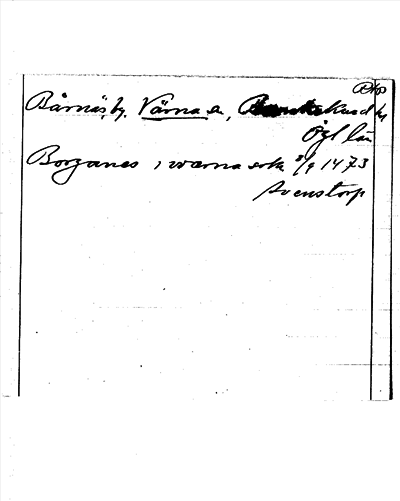 Bårnäs, by. Värna sn, kind hd
Ögl län
Borganes i wærna sokn 2/9 1473
Svenstorp